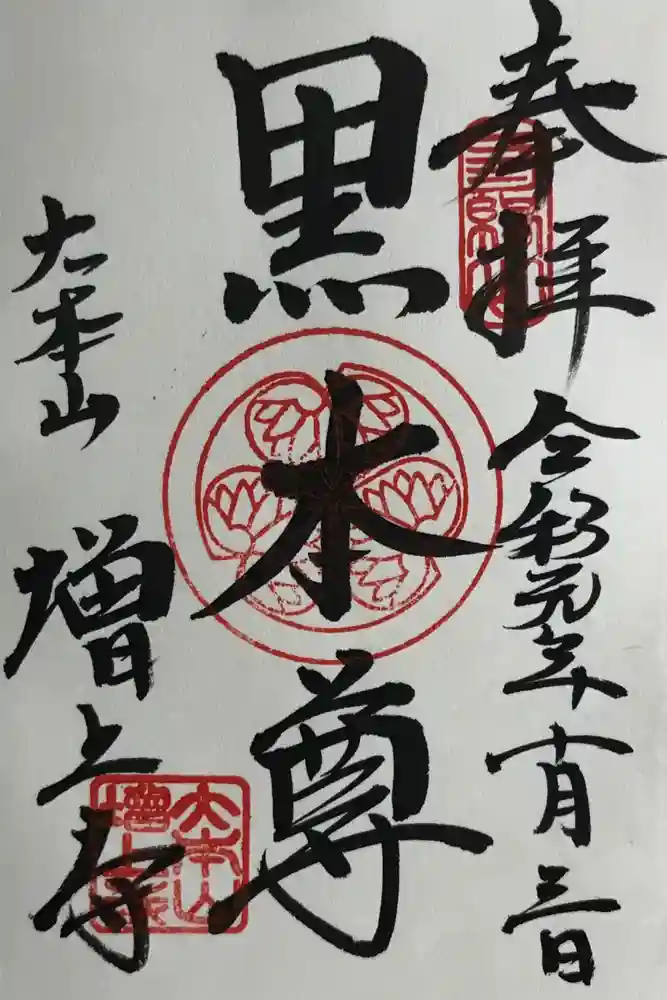 奉拝
令和元年十月三日
黒本尊
大本山
増上寺
大本山
増上寺